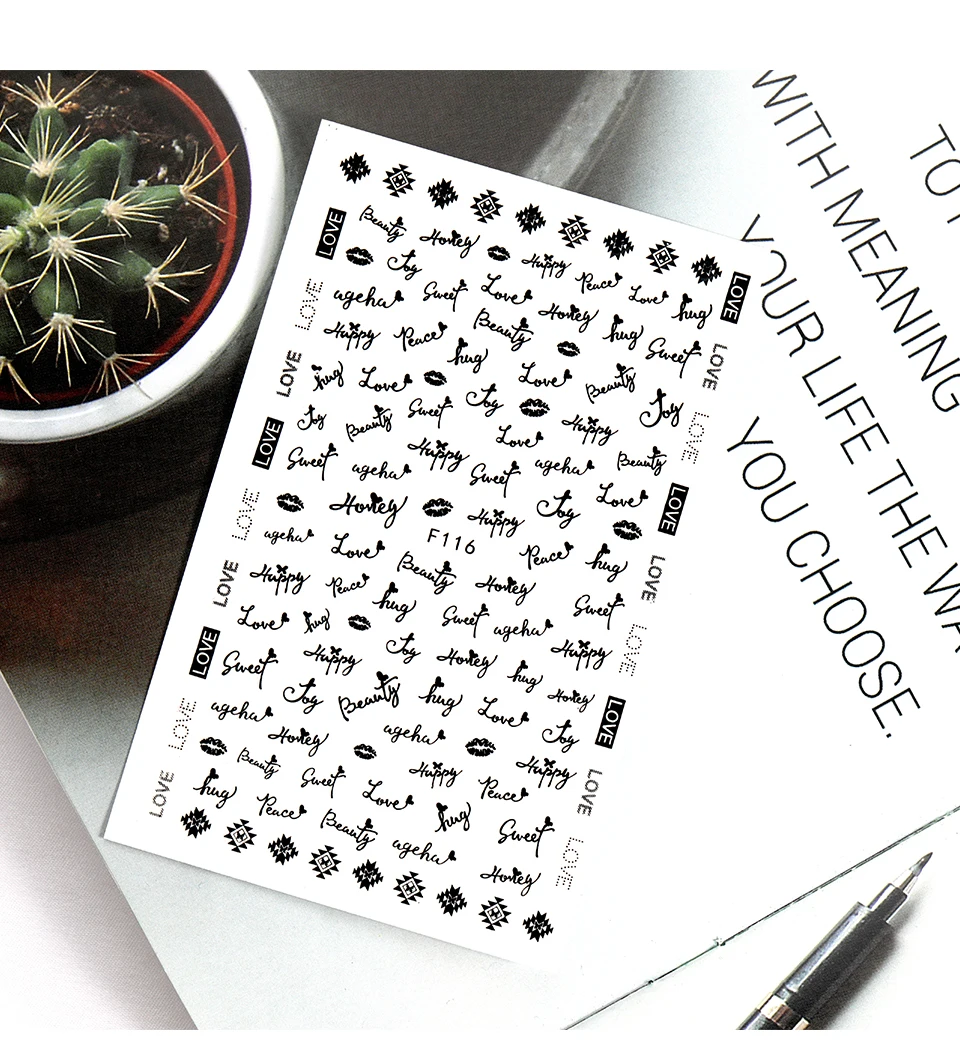 TO
WITH MEANING
YOUR LIFE THE WA
YOU CHOOSE.
LOVE Beauty Honey Happy Peace Love hug LOVE
Joy
LOVE ageha Sweet Love Honey hug Sweet LOVE
Happy Peace Beauty
LOVE hug Love hug Love Beauty Joy LOVE
Joy Beauty Sweet Joy Happy
LOVE Sweet ageha Happy Love ageha Beauty LOVE
Sweet Joy Love
LOVE Honey Happy
F116
ageha Love Peace hug LOVE
LOVE Happy Peace Beauty Honey Sweet LOVE
hug
Love hug Sweet ageha Happy
LOVE Sweet Happy Joy Honey hug Honey LOVE
Joy Beauty hug Love Joy
LOVE ageha Honey ageha Happy LOVE
Beauty Sweet Happy Peace
LOVE hug Love hug Sweet LOVE
Peace Beauty ageha Honey